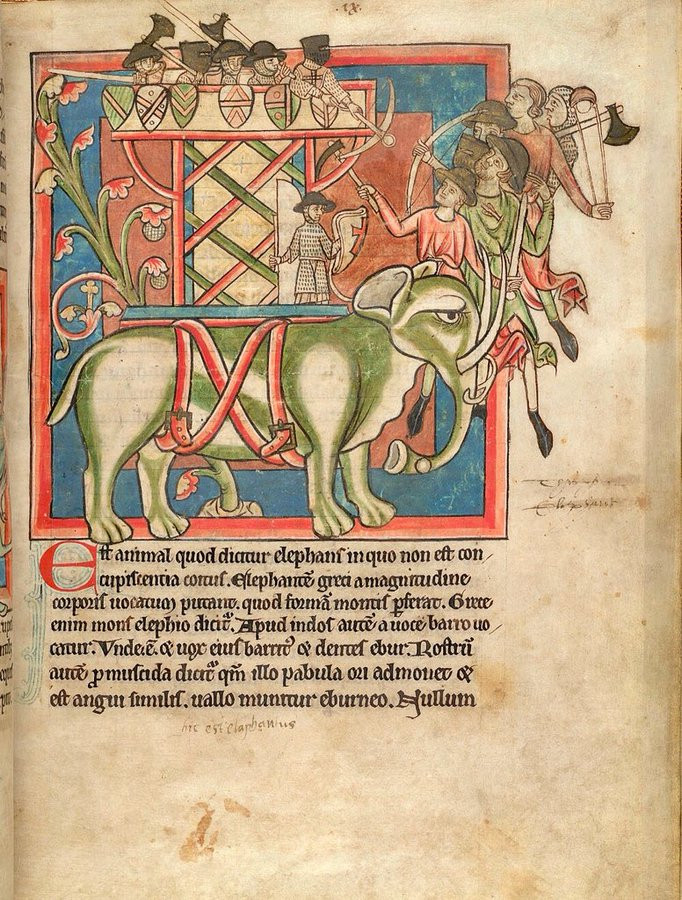 Est animal quod dicitur elephans in quo non est con
cupiscentia coitus. Elephantē greci a magnitudine
corporis uocatum putant. quod formā montis p̄ferat. Grece
enim mons elephio dicit᷑. Apud indos autē a uoce barro uo
catur. Vnde.ē. & uox eius barrit᷒ & dentes ebur. Rostrū
autē ꝓmuscida dicit᷑ qm̄ illo pabula ori admouet &
est angui similis. uallo munitur eburneo. Nullum
hic est elaphantus